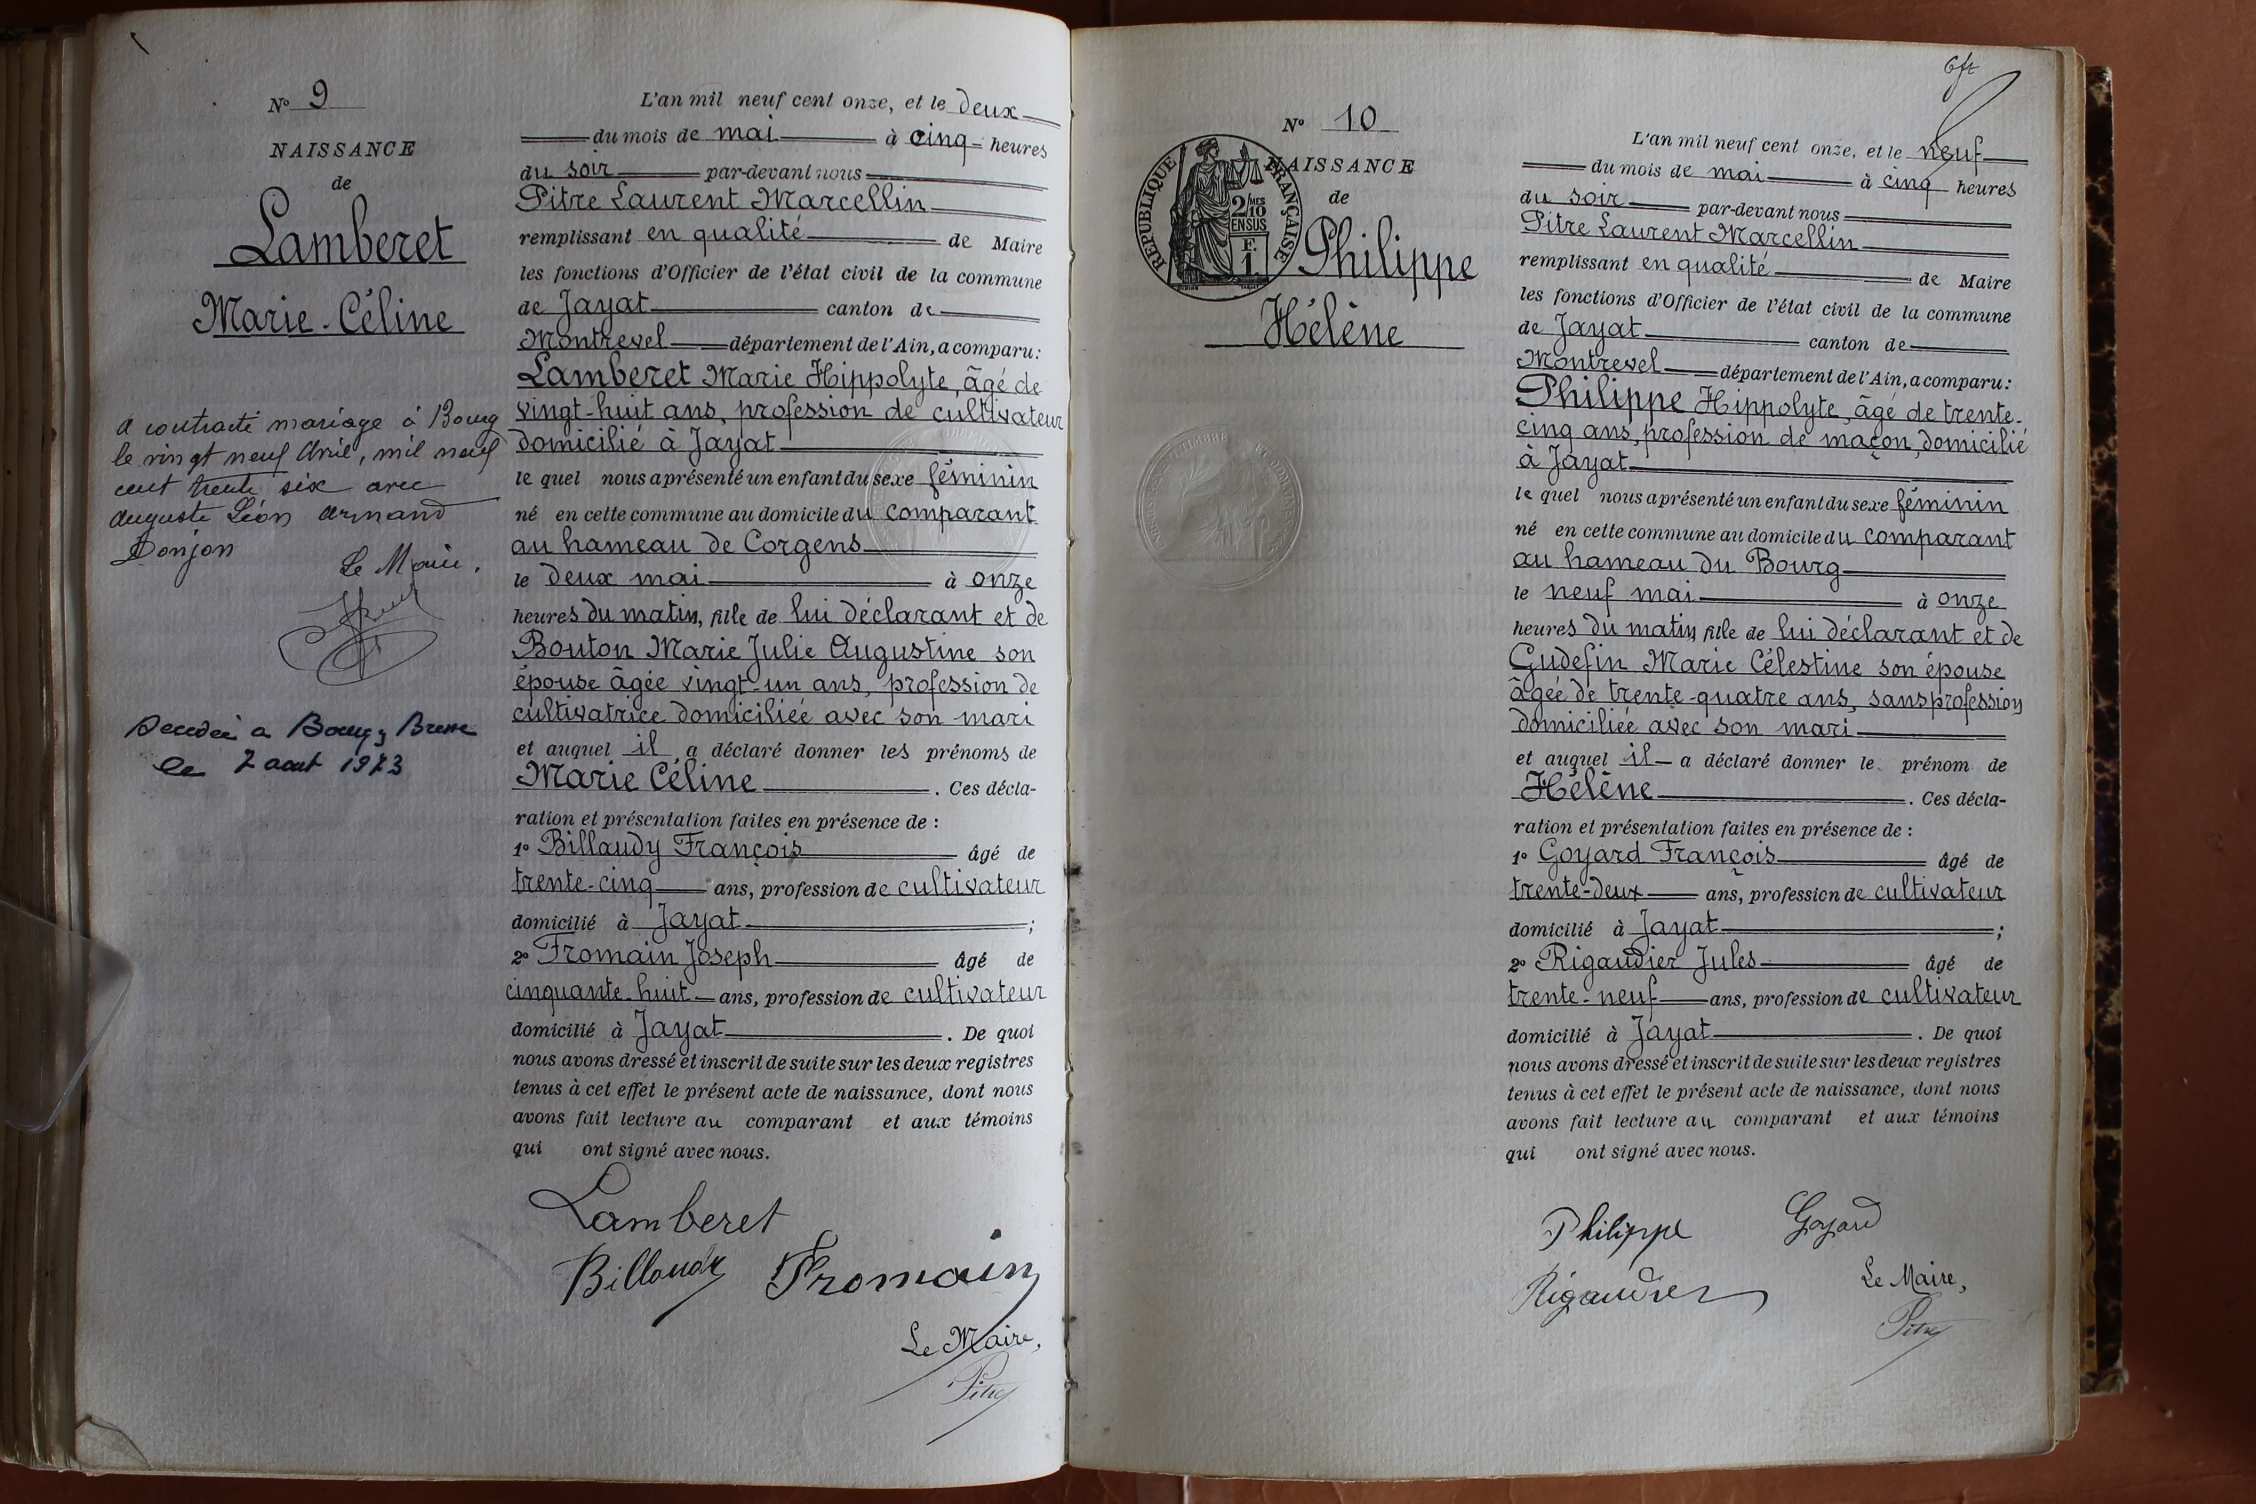 N° 9
NAISSANCE
de
Lamberet
Marie-Céline
a contracté mariage à Bourg
le vingt neuf Avril, mil neuf
cent trente six avec
Auguste Léon Armand
Donjon
Le Maire,
Décédée à Bourg en Bresse
le 7 aout 1973
L'an mil neuf cent onze, et le deux
du mois de mai à cinq heures
du soir par-devant nous
Pitre Laurent Marcellin
remplissant en qualité de Maire
les fonctions d'Officier de l'état civil de la commune
de Jayat canton de
Montrevel département de l'Ain, a comparu:
Lamberet Marie Hippolyte, âgé de
vingt-huit ans, profession de cultivateur
domicilié à Jayat
le quel nous a présenté un enfant du sexe féminin
né en cette commune au domicile du comparant
au hameau de Corgens
le deux mai à onze
heures du matin, fille de lui déclarant et de
Bouton Marie Julie Augustine son
épouse âgée vingt-un ans, profession de
cultivatrice domiciliée avec son mari
et auquel il a déclaré donner les prénoms de
Marie Céline. Ces décla-
ration et présentation faites en présence de :
1° Billaudy François âgé de
trente-cinq ans, profession de cultivateur
domicilié à Jayat ;
2° Fromain Joseph âgé de
cinquante-huit ans, profession de cultivateur
domicilié à Jayat. De quoi
nous avons dressé et inscrit de suite sur les deux registres
tenus à cet effet le présent acte de naissance, dont nous
avons fait lecture au comparant et aux témoins
qui ont signé avec nous.
Lamberet
Billaudy Fromain
Le Maire,
Pitre
N° 10
NAISSANCE
de
Philippe
Hélène
RÉPUBLIQUE FRANÇAISE
2/10 MES
EN SUS
F.
1.
L'an mil neuf cent onze, et le neuf
du mois de mai à cinq heures
du soir par-devant nous
Pitre Laurent Marcellin
remplissant en qualité de Maire
les fonctions d'Officier de l'état civil de la commune
de Jayat canton de
Montrevel département de l'Ain, a comparu:
Philippe Hippolyte, âgé de trente-
cinq ans, profession de maçon, domicilié
à Jayat
le quel nous a présenté un enfant du sexe féminin
né en cette commune au domicile du comparant
au hameau du Bourg
le neuf mai à onze
heures du matin fille de lui déclarant et de
Gudefin Marie Célestine son épouse
âgée de trente-quatre ans, sans profession
domiciliée avec son mari
et auquel il a déclaré donner le prénom de
Hélène. Ces décla-
ration et présentation faites en présence de :
1° Goyard François âgé de
trente-deux ans, profession de cultivateur
domicilié à Jayat ;
2° Rigaudier Jules âgé de
trente-neuf ans, profession de cultivateur
domicilié à Jayat. De quoi
nous avons dressé et inscrit de suite sur les deux registres
tenus à cet effet le présent acte de naissance, dont nous
avons fait lecture au comparant et aux témoins
qui ont signé avec nous.
Philippe Goyard
Rigaudier Le Maire,
Pitre